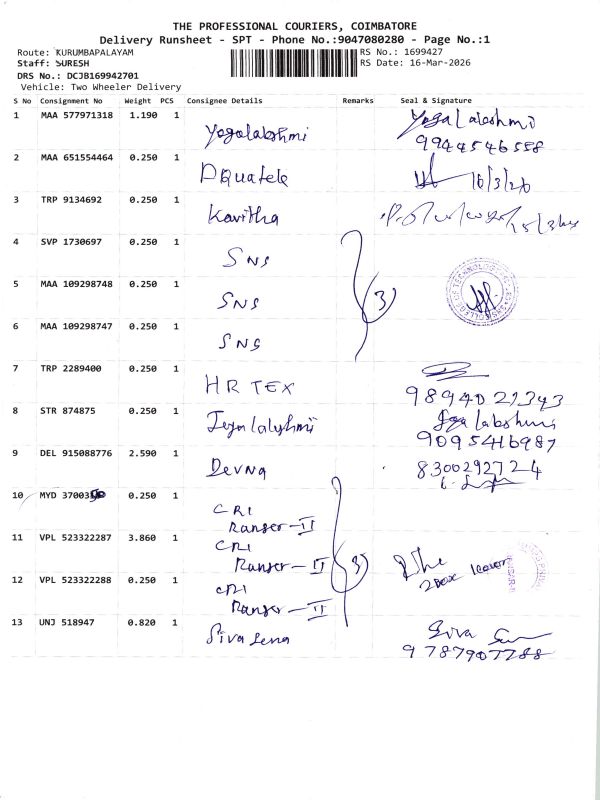 THE PROFESSIONAL COURIERS, COIMBATORE
Delivery Runsheet - SPT - Phone No.:9047080280 - Page No.:1
Route: KURUMBAPALAYAM
Staff: SURESH
DRS No.: DCJB169942701
Vehicle: Two Wheeler Delivery
RS No.: 1699427
RS Date: 16-Mar-2026
S No Consignment No Weight PCS Consignee Details Remarks Seal & Signature
1 MAA 577971318 1.190 1 Yogalakshmi Yoga Lakshmi
9944546558
2 MAA 651554464 0.250 1 16/3/26
3 TRP 9134692 0.250 1 Kavitha
4 SVP 1730697 0.250 1 SNS
5 MAA 109298748 0.250 1 SNS 3
6 MAA 109298747 0.250 1 SNS
7 TRP 2289400 0.250 1 HR TEX
9894021343
8 STR 874875 0.250 1
9095416987
9 DEL 915088776 2.590 1 Devna 8300292724
10 MYD 0.250 1 CRI
Ranger-II
11 VPL 523322287 3.860 1 CRI
Ranger-II 3
2 Box
12 VPL 523322288 0.250 1 CRI
Ranger-II
13 UNJ 518947 0.820 1 Siva Sena Siva
9787907788